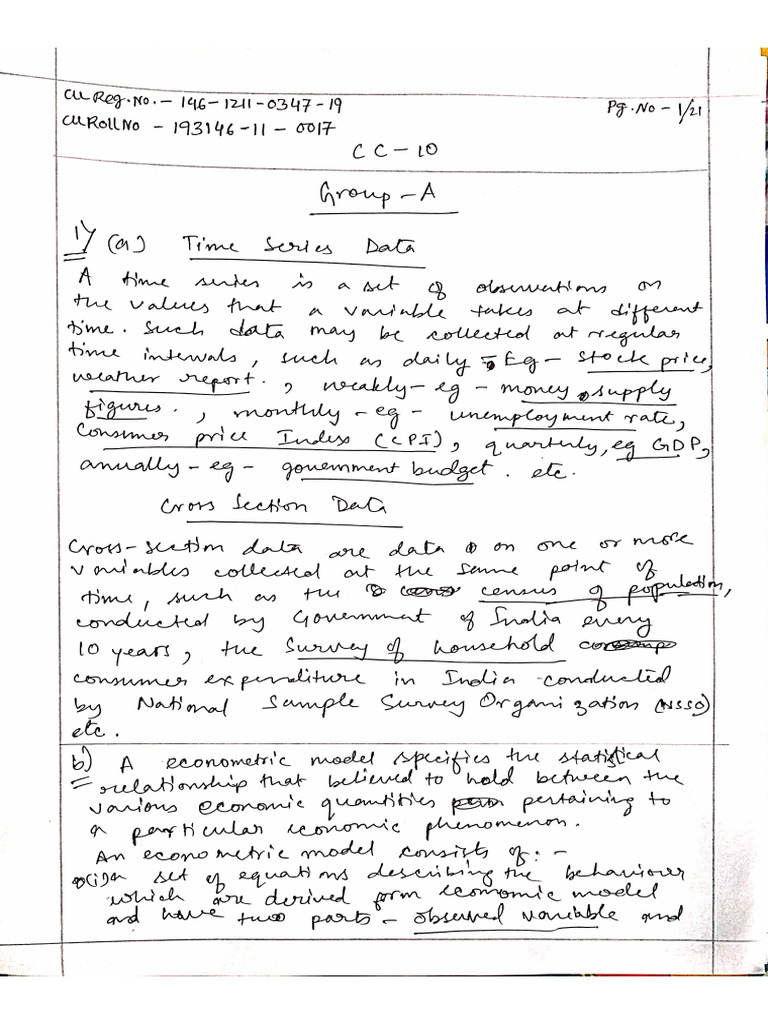 CU Reg. No. - 146-1211-0347-19
Pg. No - 1/21
CU Roll No - 193146-11-0017
CC-10
Group-A
1) (a) Time Series Data
A time series is a set of observations on
the values that a variable takes at different
time. Such data may be collected at regular
time intervals, such as daily - Eg - stock price,
weather report. , weakly - eg - money supply
figures. , monthly - eg - unemployment rate,
Consumer price Index (CPI), quarterly, eg GDP,
annually - eg - government budget. etc.
Cross Section Data
Cross-section data are data on one or more
variables collected at the same point of
time, such as the census of population,
conducted by Government of India every
10 years, the Survey of household
consumer expenditure in India conducted
by National Sample Survey Organization (NSSO)
etc.
b) A econometric model specifies the statistical
relationship that believed to hold between the
various economic quantities pertaining to
a particular economic phenomenon.
An econometric model consists of: -
(i) A set of equations describing the behaviour
which are derived form economic model
and have two parts - observed variable and